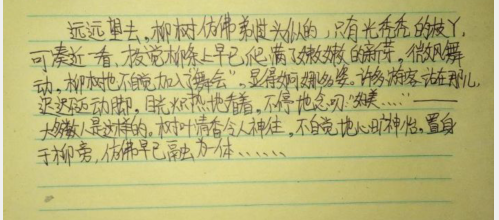 远远望去，柳树仿佛弟世头似的，只有光秃秃的枝丫，
可凑近一看，枝说柳条上早已爬满了嫩嫩的新芽。微风舞
动，柳树也不自觉加入了“舞会”，显得婀娜多姿。许多游客站在那儿，
迟迟不运动脚。目光炽热地看着，不停地念叨“好美……”——
大多数人是这样的。树叶清香令人神往，不自觉地心旷神怡。置身
于柳旁，仿佛早已融为一体……